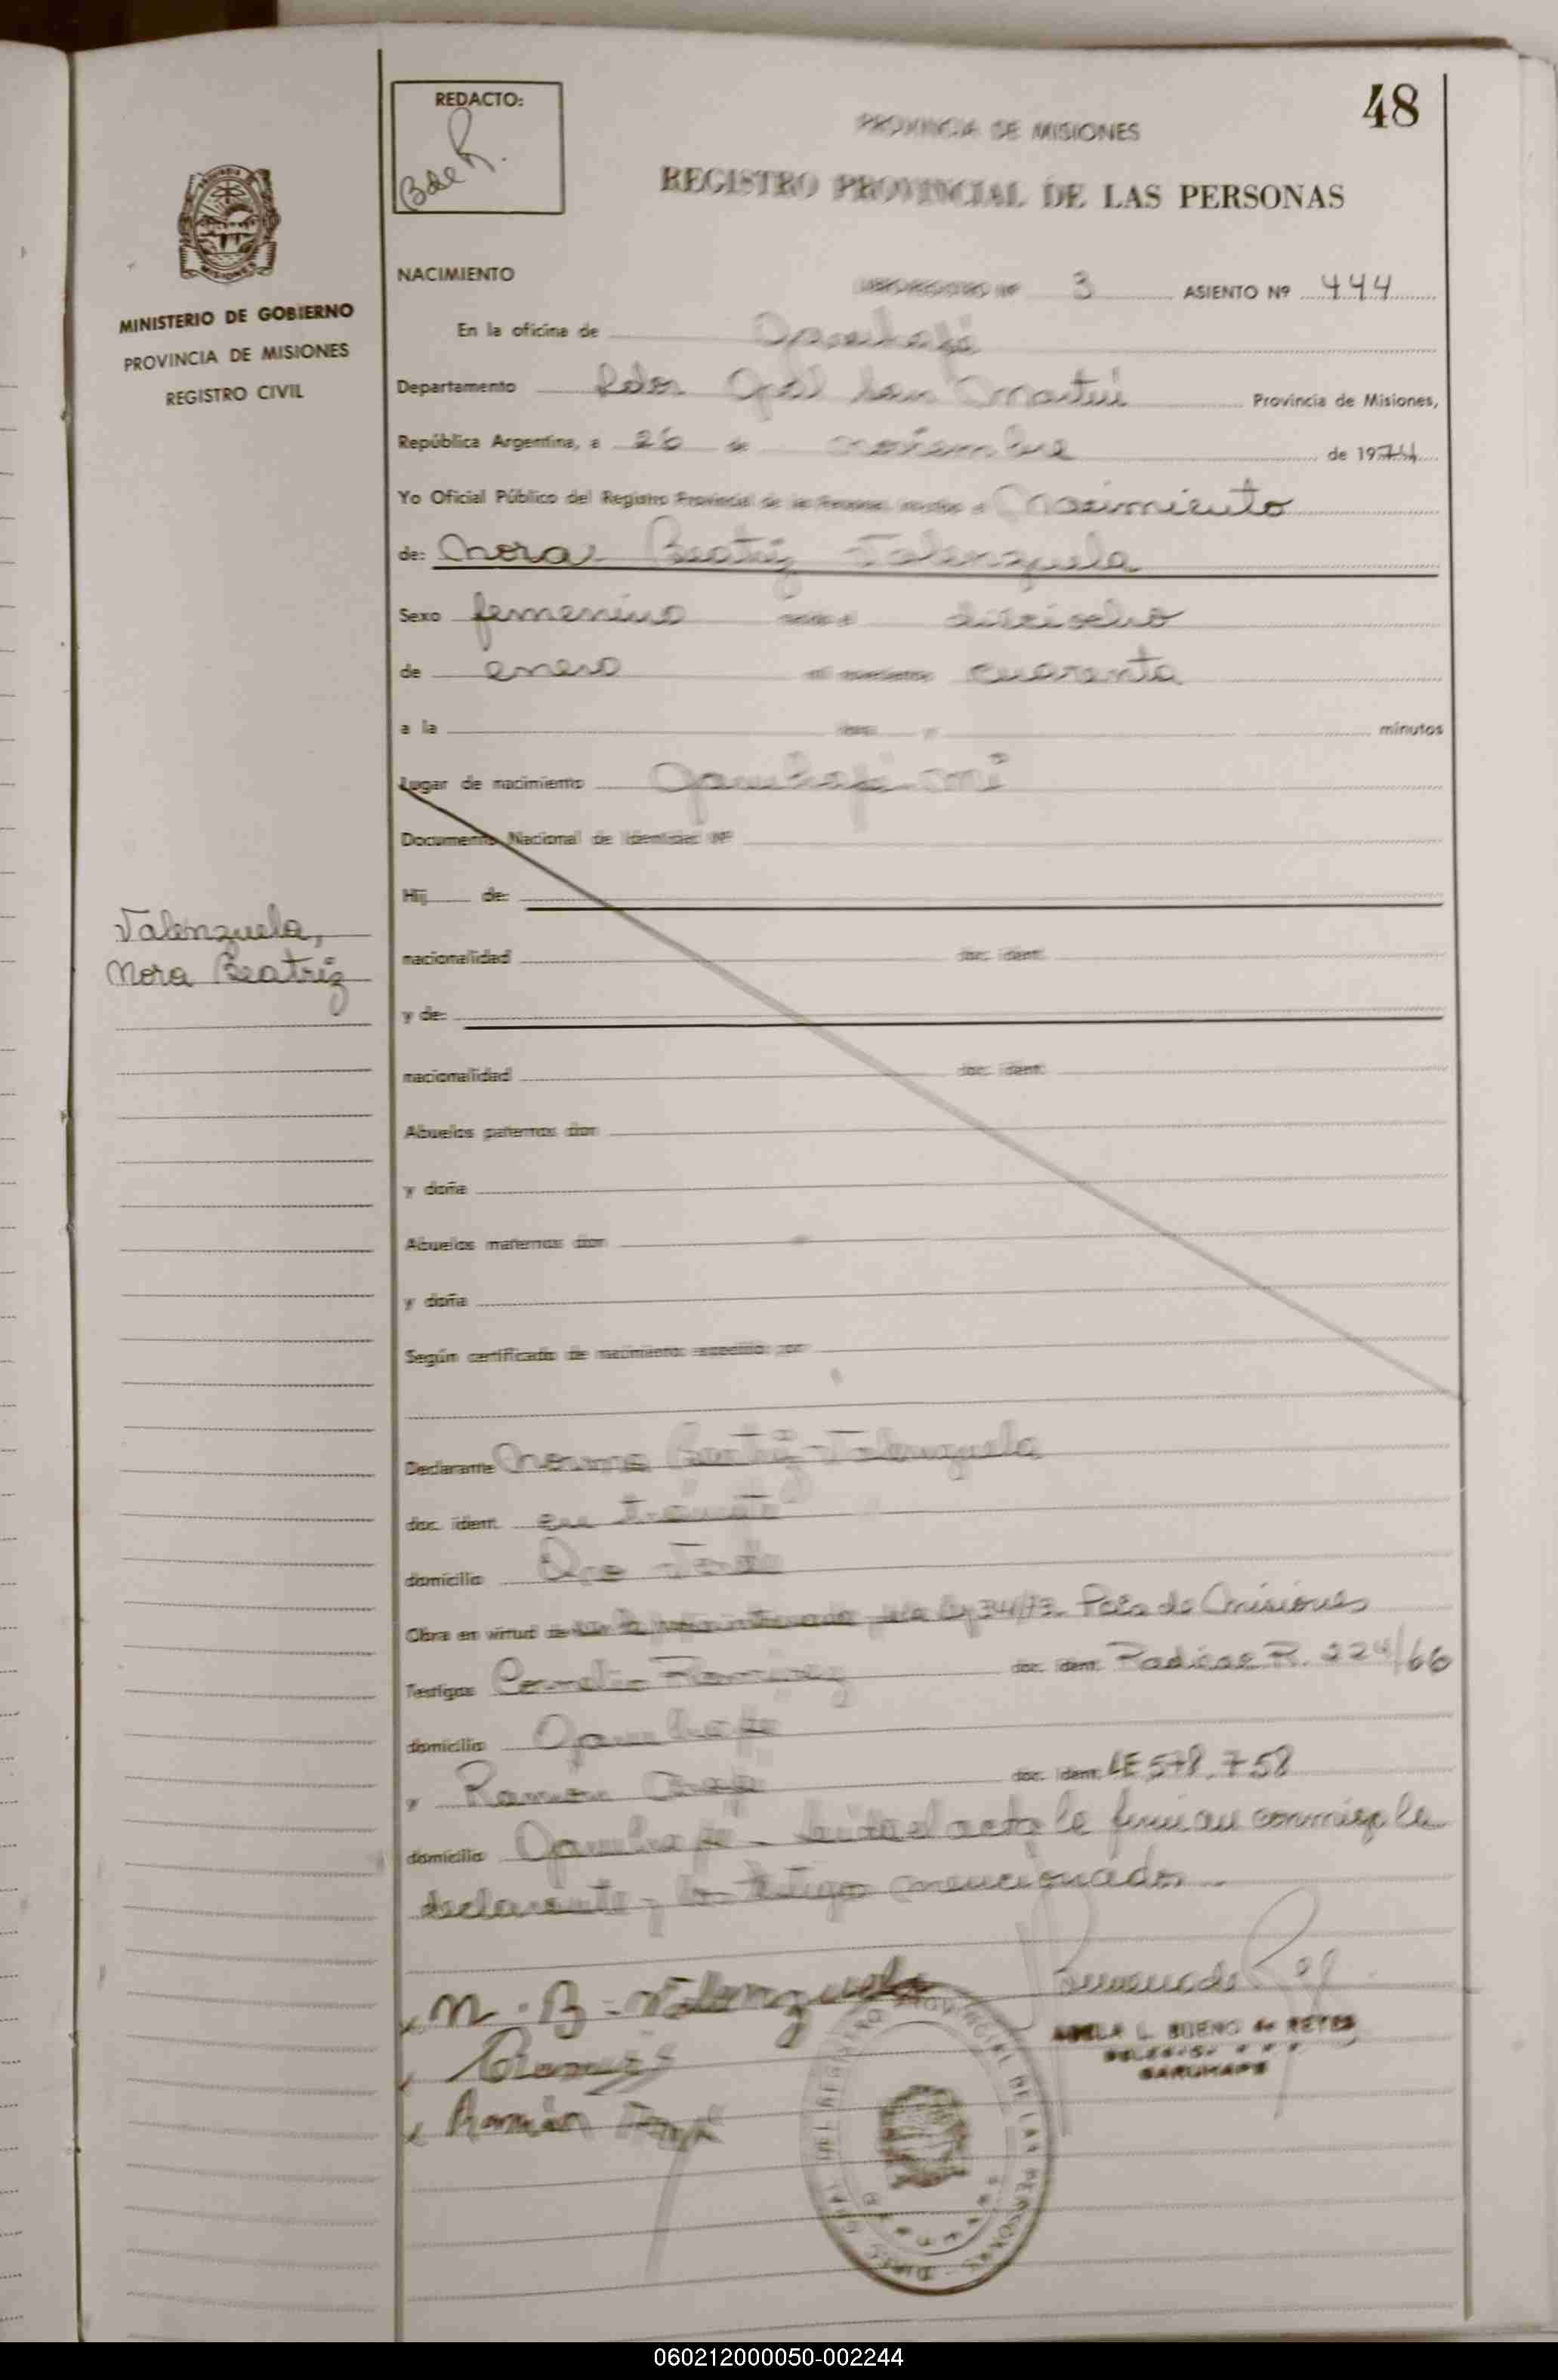 48
REDACTO:
B de R.
PROVINCIA DE MISIONES
REGISTRO PROVINCIAL DE LAS PERSONAS
PROVINCIA DE MISIONES
MINISTERIO DE GOBIERNO
PROVINCIA DE MISIONES
REGISTRO CIVIL
NACIMIENTO 3 ASIENTO Nº 444
En la oficina de Garuhapé
Departamento Ldor Gral San Martín Provincia de Misiones,
República Argentina, a 26 de noviembre de 1974
Yo Oficial Público del Registro Provincial de las Personas, inscribo el Nacimiento
de: Nora Beatriz Valenzuela
Sexo femenino nacida el dieciocho
de enero de mil novecientos cuarenta
a la hora y minutos
Lugar de nacimiento Garuhapé-mí
Documento Nacional de Identidad Nº
Hij de:
nacionalidad doc. ident.
y de:
nacionalidad doc. ident.
Abuelos paternos don
y doña
Abuelos maternos don
y doña
Según certificado de nacimiento expedido por
Valenzuela,
Nora Beatriz
Declarante Beatriz Valenzuela
doc. ident. en trámite
domicilio
Obra en virtud de ley 34/73. Pcia de Misiones
Testigos Cornelio Ramirez doc. ident. Radicac R. 224/66
domicilio Garuhapé
y Ramón doc. ident. LE 578.758
domicilio Garuhapé - Leída el acta la firman conmigo la
declarante y los testigos mencionados.-
N. B. Valenzuela
Ramón
ADELA L. BUENO de REYES
GARUHAPE
DIRECC. GRAL. DEL REGISTRO PROVINCIAL DE LAS PERSONAS
060212000050-002244